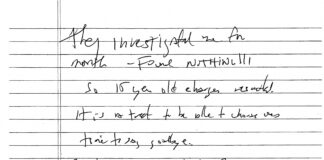 they investigated me for
month – Found NOTHING!!!
So 15 year old charges resulted.
It is no treat to be able to choose ones
time to say goodbye.